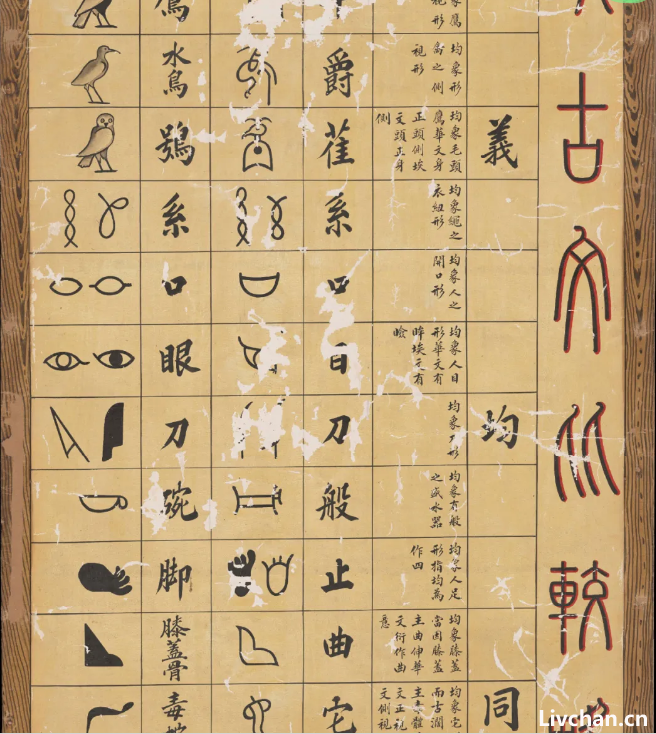 古文比較
義
均
同
均象形
之側
視形
均象毛頭
鷹華文身
正頭側埃
文頭正身
側
均象繩之
衣紐形
均象人之
開口形
均象人目
形華文有
眸埃文有
瞼
均象刀形
均象有般
之盛水器
均象人足
形指均為
作四
均象膝蓋
當因膝蓋
主曲伸華
文衍作曲
意
均象宅
文正視
文側視
爵
萑
系
口
目
刀
般
止
曲
宅
水鳥
鴞
系
口
眼
刀
碗
脚
膝蓋骨
毒
Livchan.cn